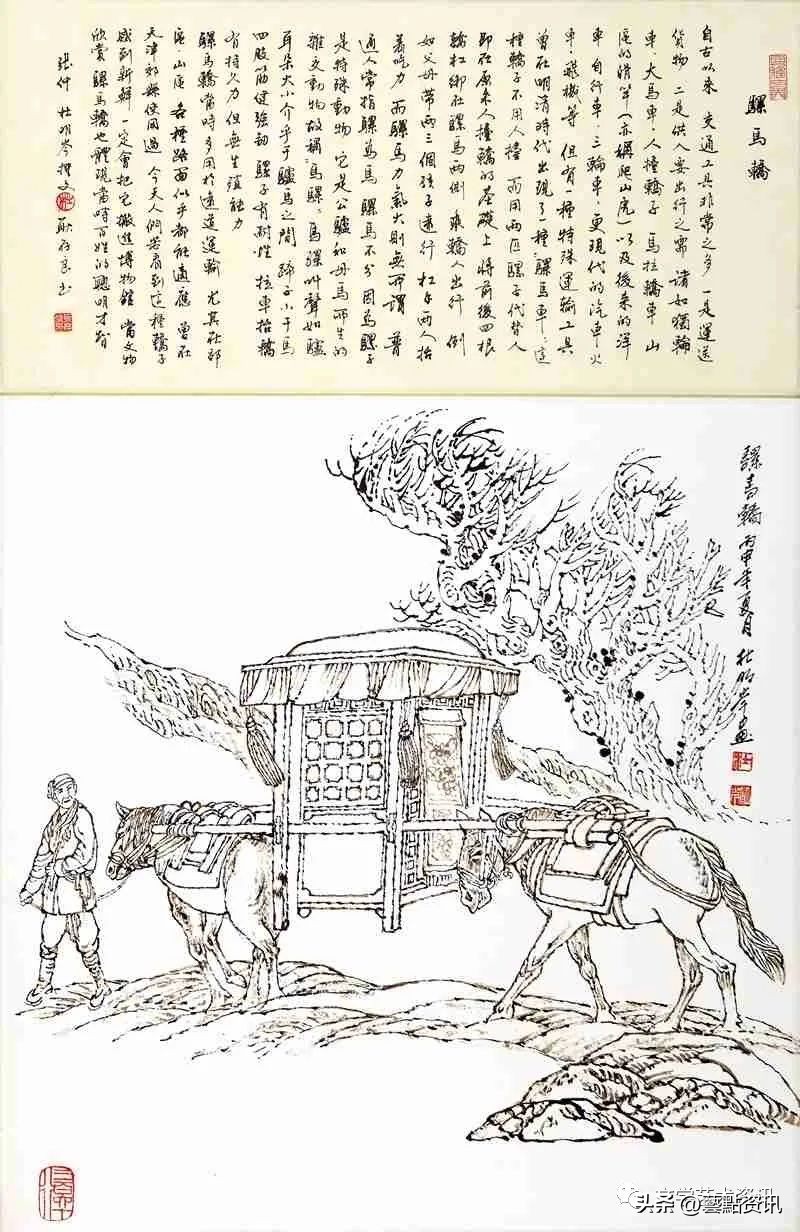 騾馬轎
自古以來 交通工具非常之多 一是運送
貨物 二是供人要出行之需 諸如獨輪
車·大馬車·人擡轎子 馬拉轎車 山
區的滑竿(亦稱爬山虎)以及後來的洋
車·自行車·三輪車 更現代的汽車火
車·飛機等 但有一種特殊運輸工具
曾在明清時代出現了一種"騾馬車"這
種轎子不用人擡 而用兩匹騾子代替人
即在原來人擡轎的基礎上 將前後四根
轎杠綁在騾馬兩側 乘轎人出行 例
如父母帶两三個孩子遠行 杠手兩人抬
着吃力 而騾馬力氣大則無所謂 普
通人常指騾爲馬 騾馬不分 因爲騾子
是特殊動物 它是公驢和母馬所生的
雜交動物故稱"馬騾" 馬騾叫聲如驢
耳朵大小介乎于驢馬之間 蹄子小于馬
四肢筋健強韌 騾子有耐性 拉車抬轎
有持久力但無生殖能力
騾馬轎當時多用於遠道運輸 尤其在郊
區·山區 各種路面似乎都能適應 曾在
天津郊縣使用過 今天人們若看到這種轎子
感到新鮮 一定會把它搬進博物館 當文物
欣賞 騾馬轎也體現當時百姓的聰明才智
張仲 杜明岑撰文 書
騾馬轎 丙申年夏月 杜明岑畫
头条@藝點资讯